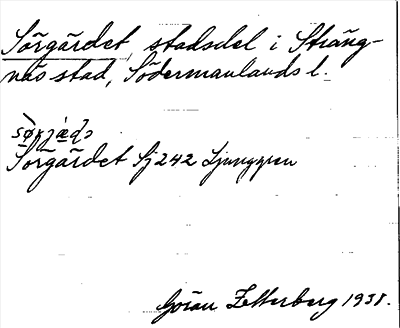 Sörgärdet, stadsdel i Sträng-
näs stad, Södermanlands l.
Sörgärdet Sj 242 Ljunggren
Göran Zetterberg 1938.